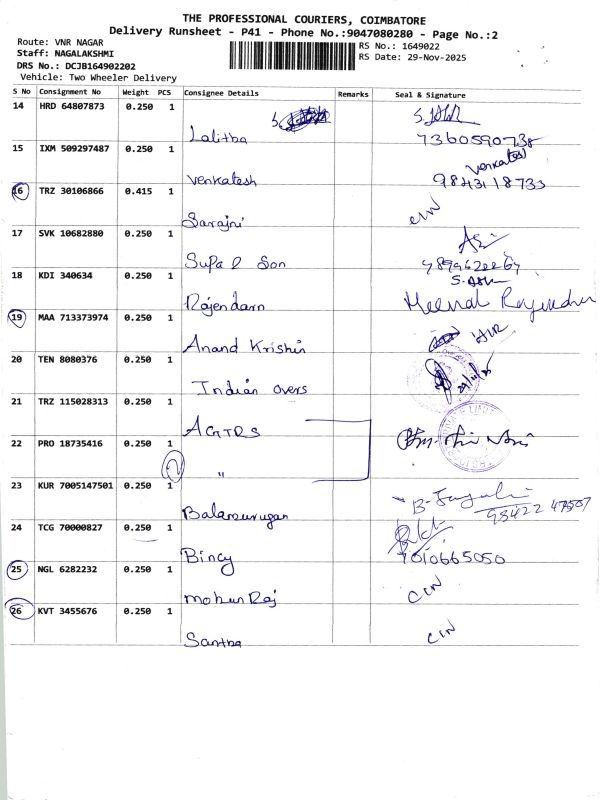 THE PROFESSIONAL COURIERS, COIMBATORE
Delivery Runsheet - P41 - Phone No.:9047080280 - Page No.:2
Route: VNR NAGAR
Staff: NAGALAKSHMI
DRS No.: DCJB164902202
Vehicle: Two Wheeler Delivery
RS No.: 1649022
RS Date: 29-Nov-2025
S No Consignment No Weight PCS Consignee Details Remarks Seal & Signature
14 HRD 64807873 0.250 1
Lalitha 7360590738
15 IXM 509297487 0.250 1 Venkatesh
Venkatesh 9843118733
16 TRZ 30106866 0.415 1 CIN
Sarajni
17 SVK 10682880 0.250 1
Supa & Son
18 KDI 340634 0.250 1
Rajendarn Meenal
19 MAA 713373974 0.250 1
Anand Krishin
20 TEN 8080376 0.250 1
Indian overs
21 TRZ 115028313 0.250 1
AGTDS
22 PRO 18735416 0.250 1
2 "
23 KUR 7005147501 0.250 1
Balamurugan 98422 47507
24 TCG 70000827 0.250 1
Bincy 7010665050
25 NGL 6282232 0.250 1 CIN
mohun Raj
26 KVT 3455676 0.250 1 CIN
Santha